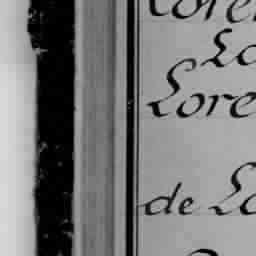 Lore
Lo
Lore
de Lo